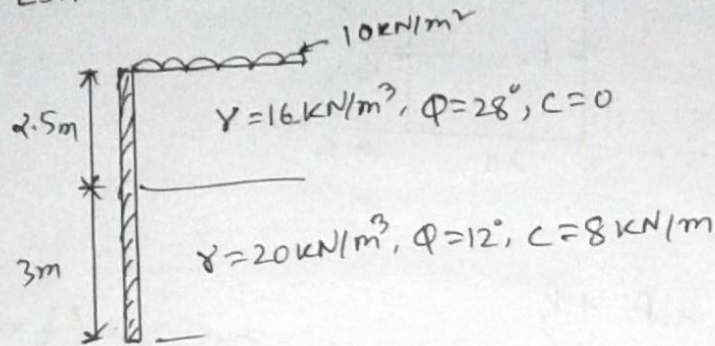 10KN/m²
2.5m
γ=16KN/m³, Φ=28°, C=0
3m
γ=20KN/m³, Φ=12°, C=8KN/m